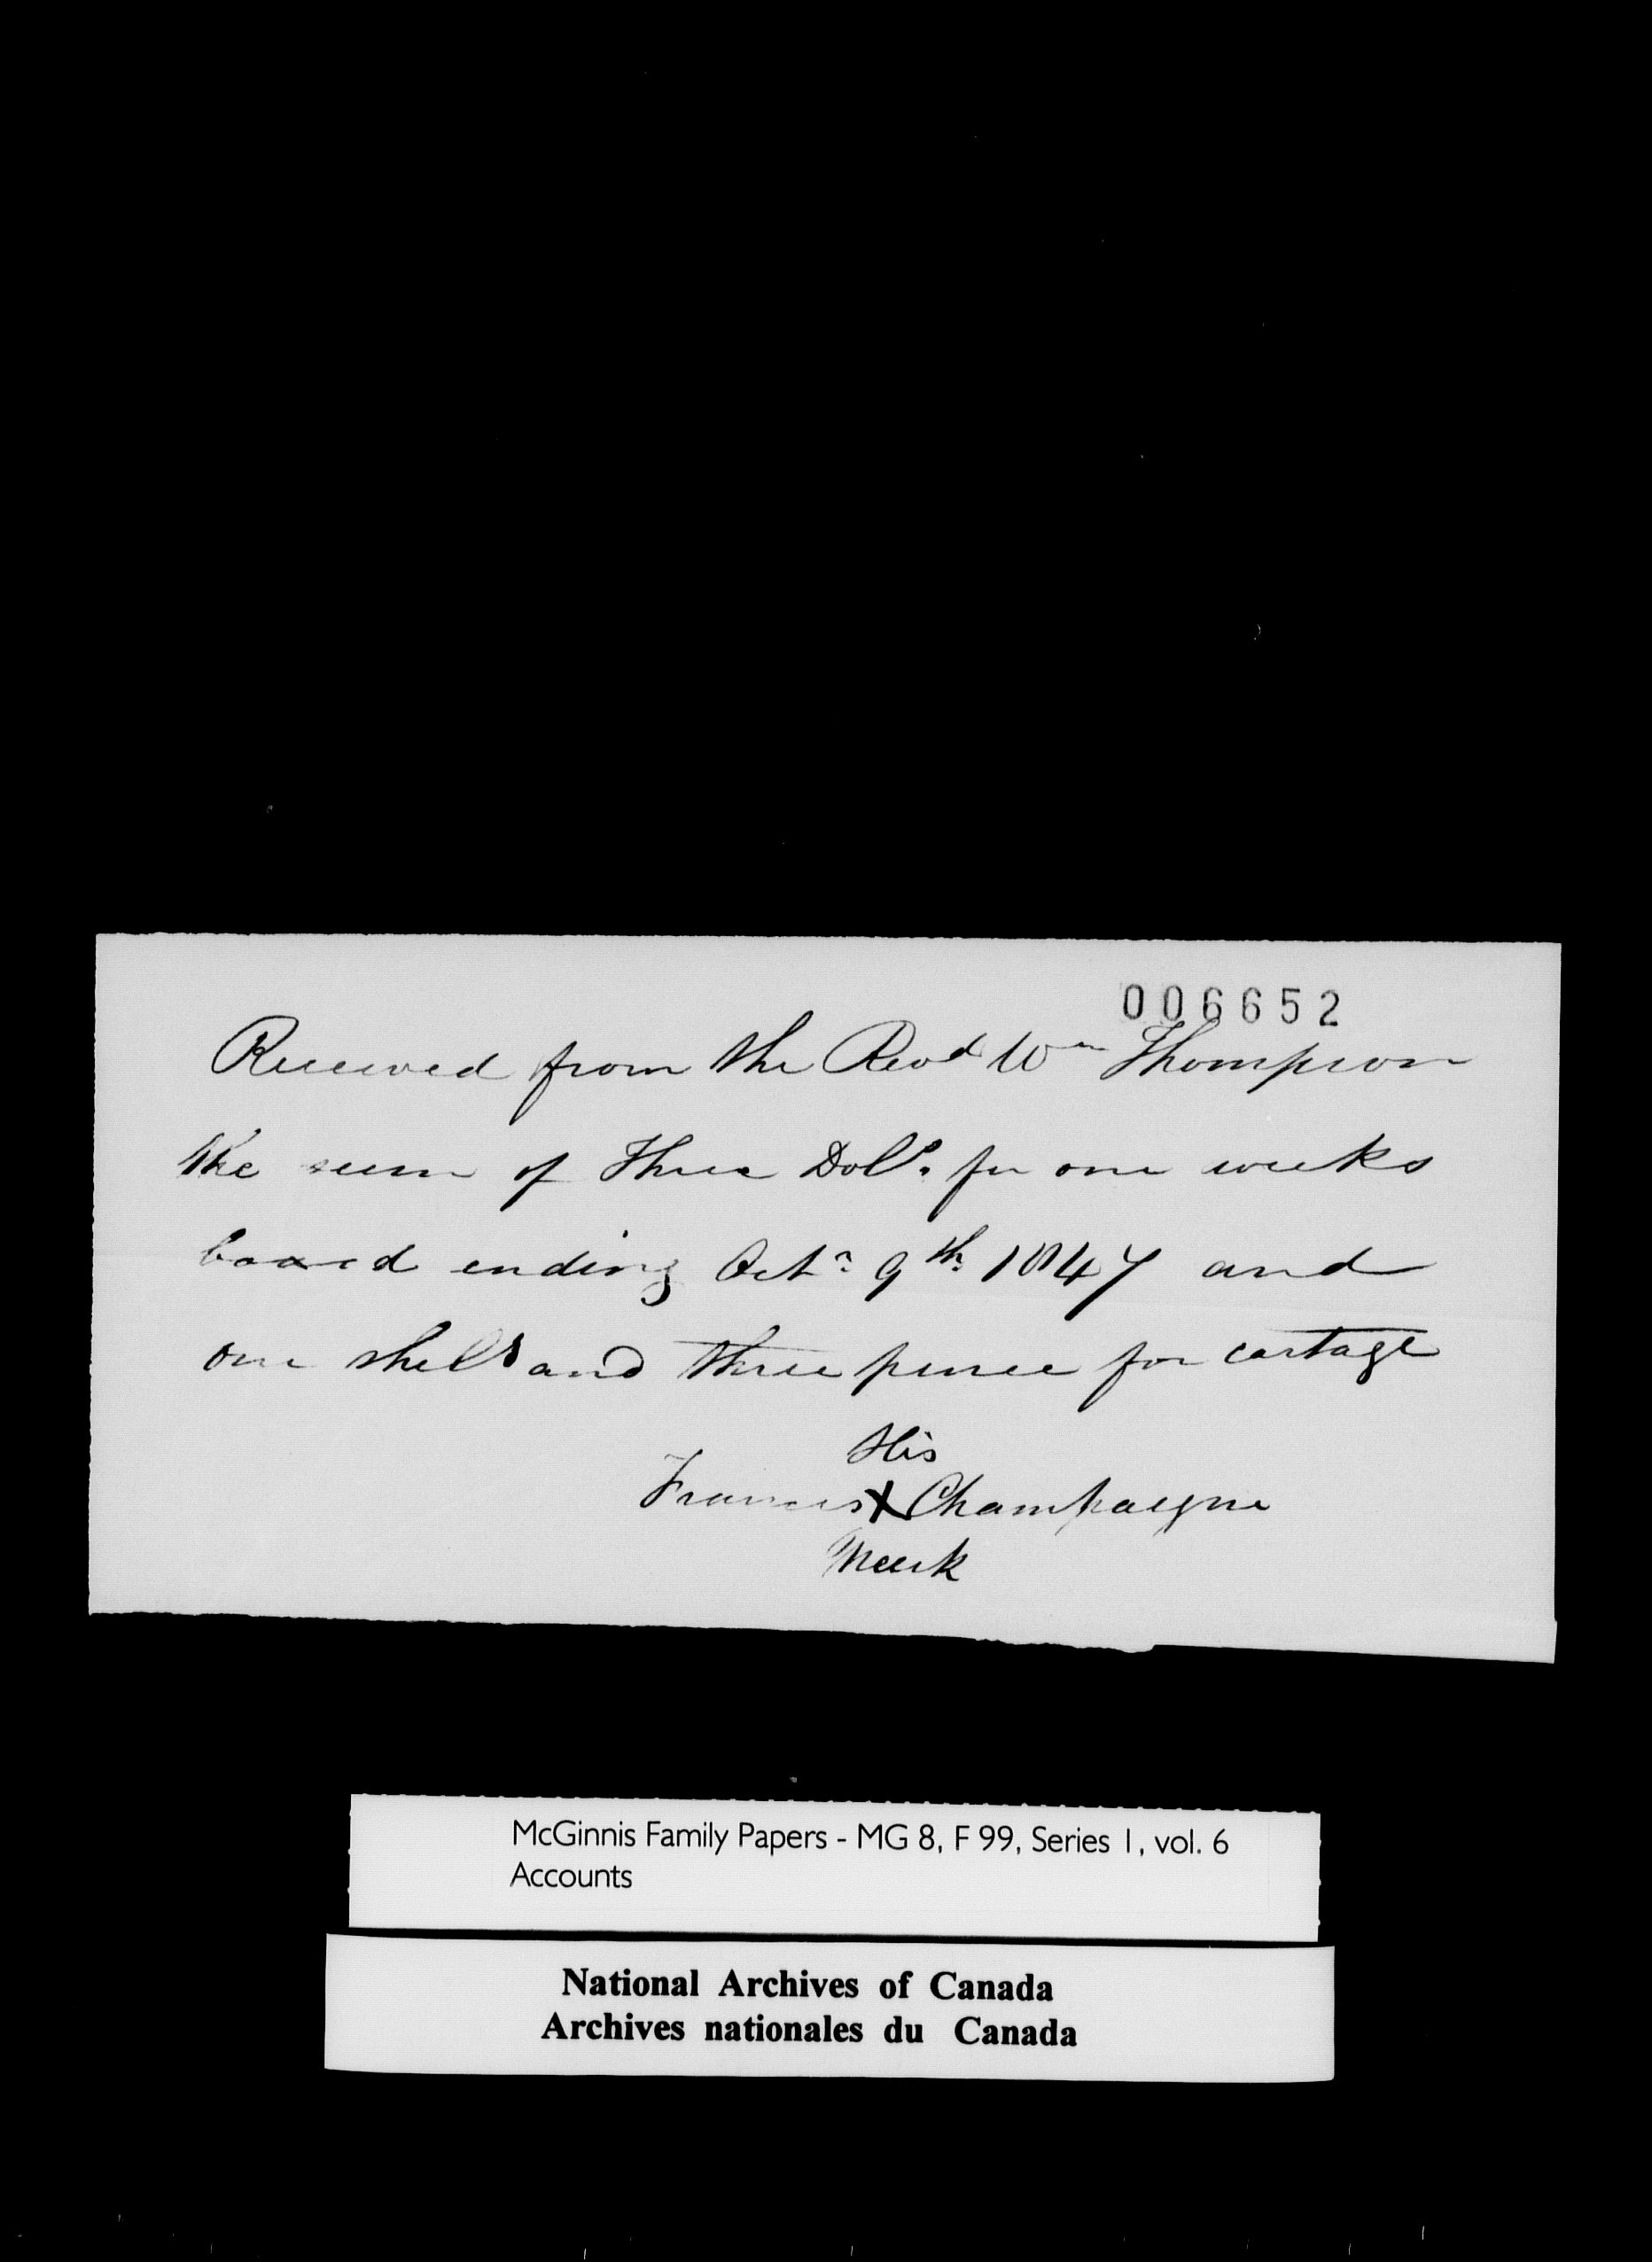 006652
Received from the Revd Wm Thompson
the sum of Three Dolls. for one weeks
board ending Octr. 9th. 1847 and
one shells and three pence for cartage
His
Francis X Champaigne
Mark
McGinnis Family Papers - MG 8, F 99, Series 1, vol. 6
Accounts
National Archives of Canada
Archives nationales du Canada